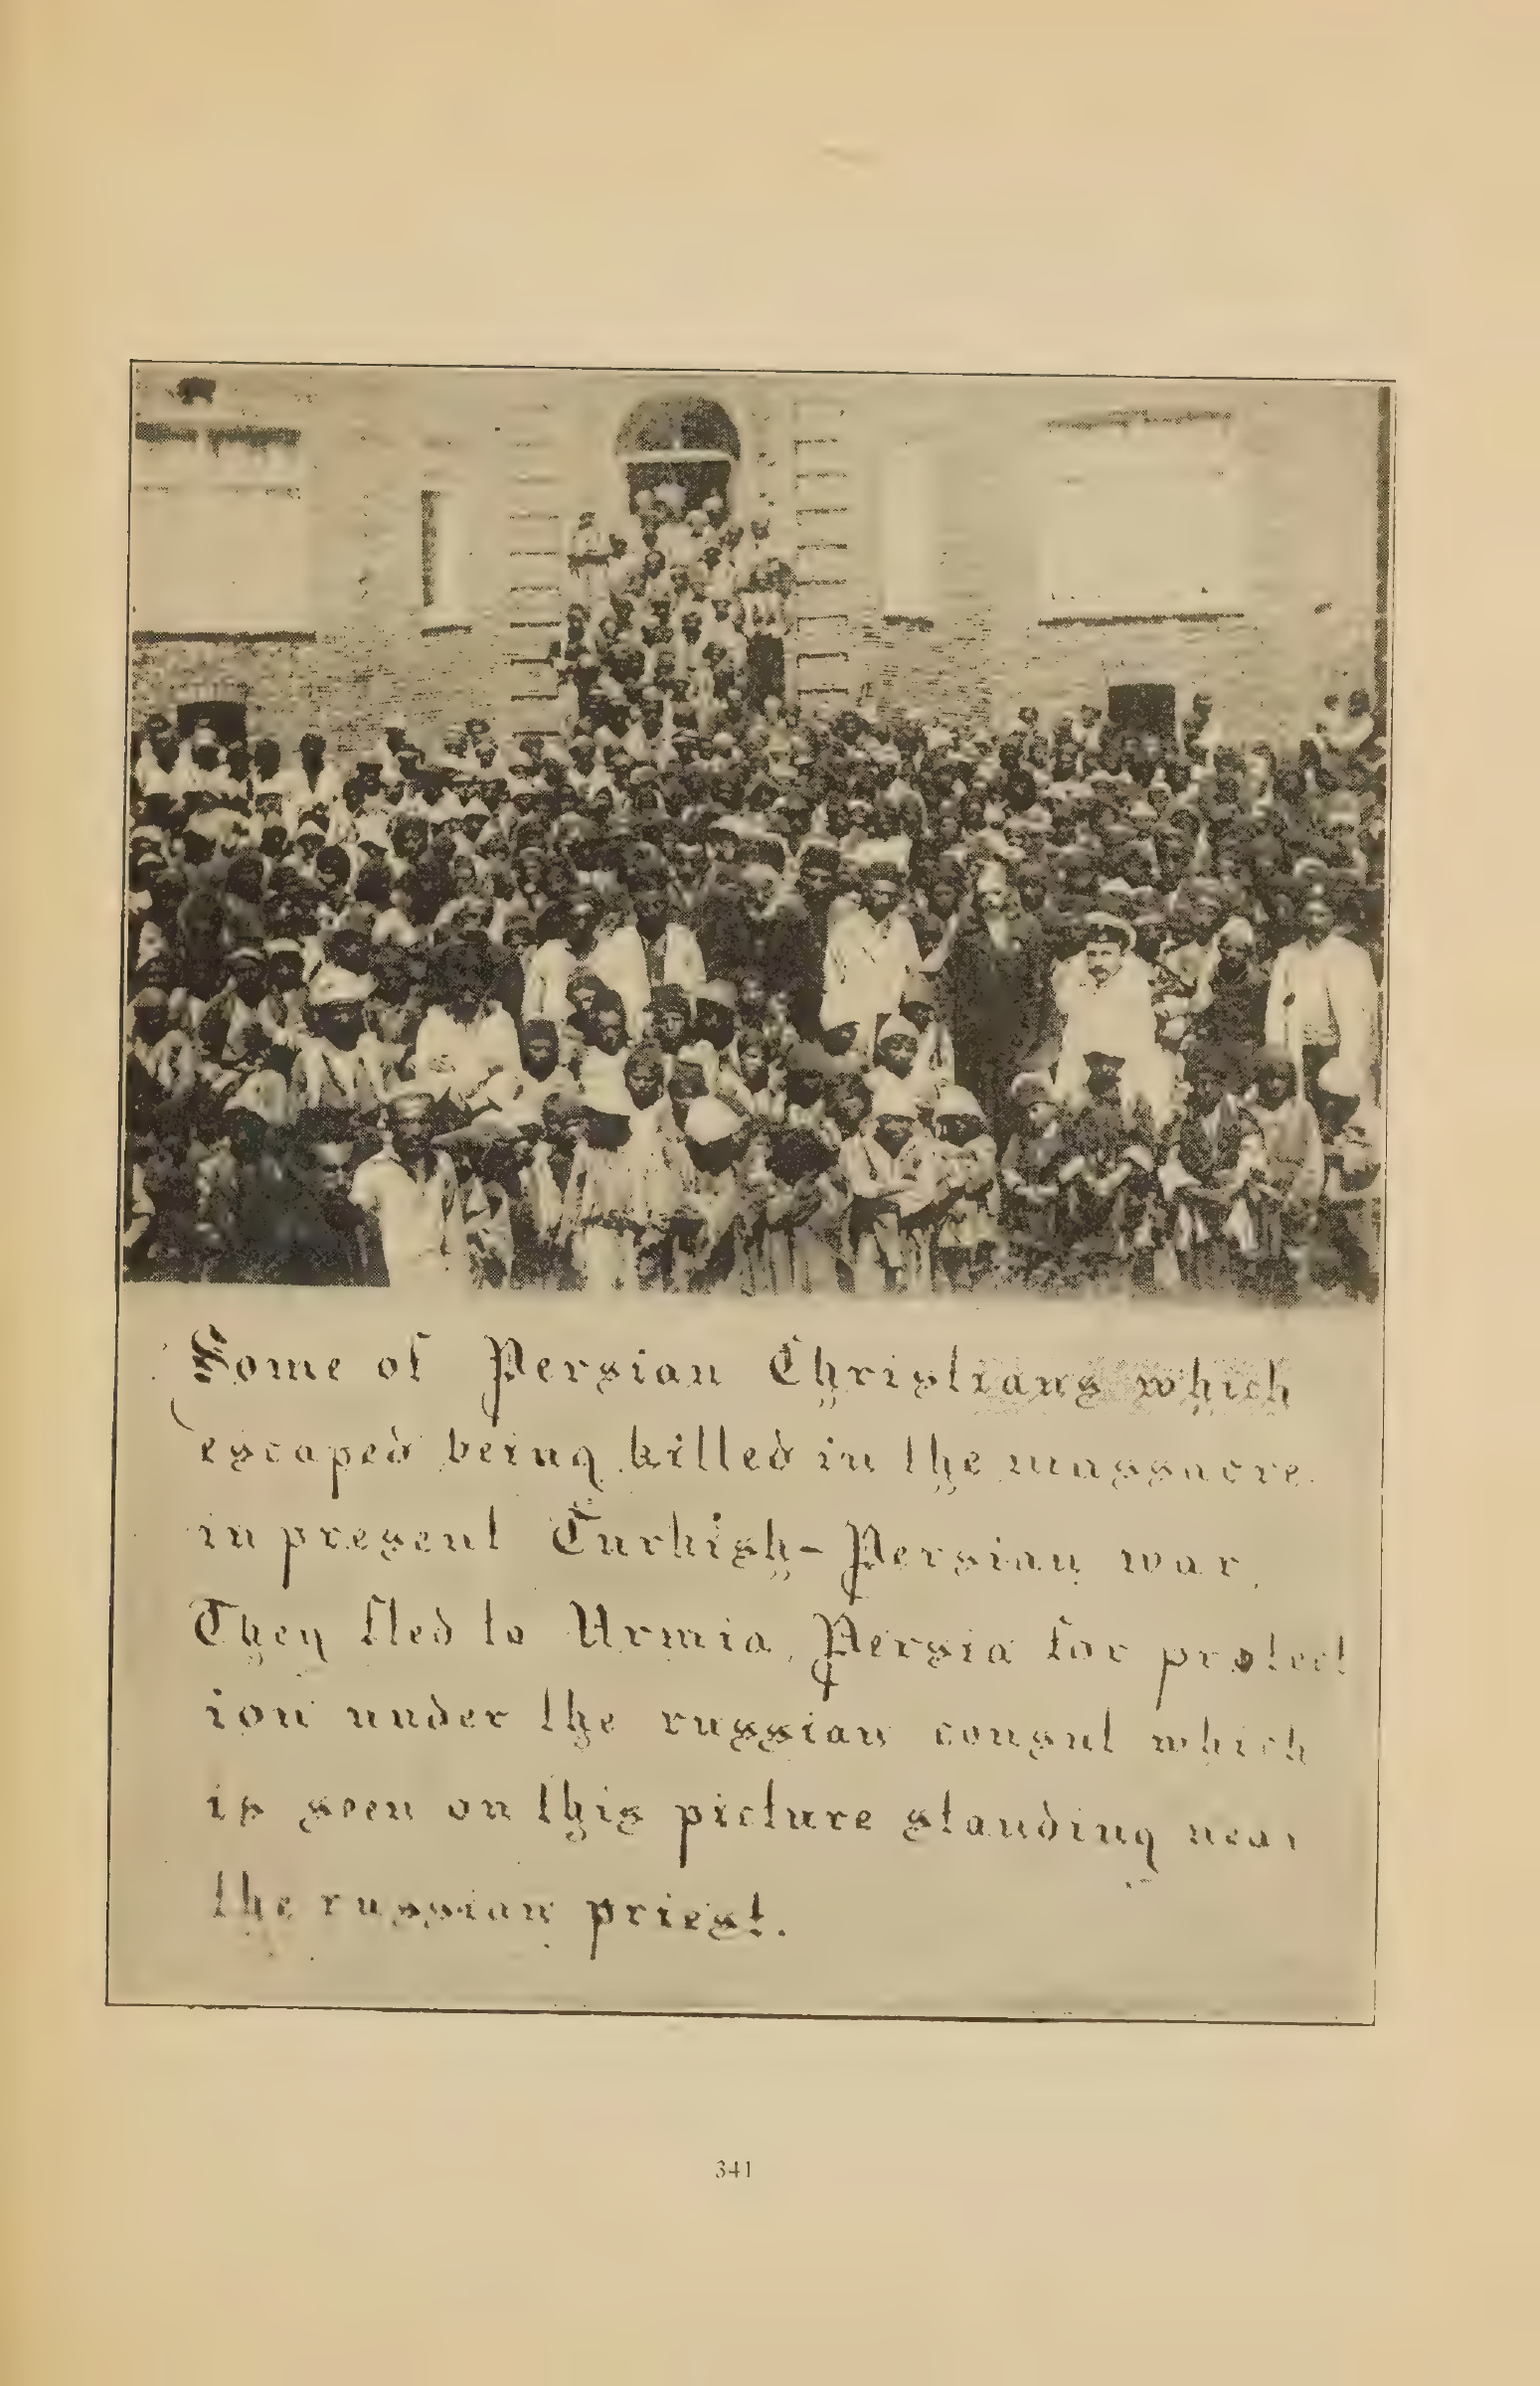 Some of Persian Christians which
escaped being killed in the massacre
in present Turkish-Persian war.
They fled to Urmia, Persia for protect
ion under the russian consul which
is seen on this picture standing near
the russian priest.
341